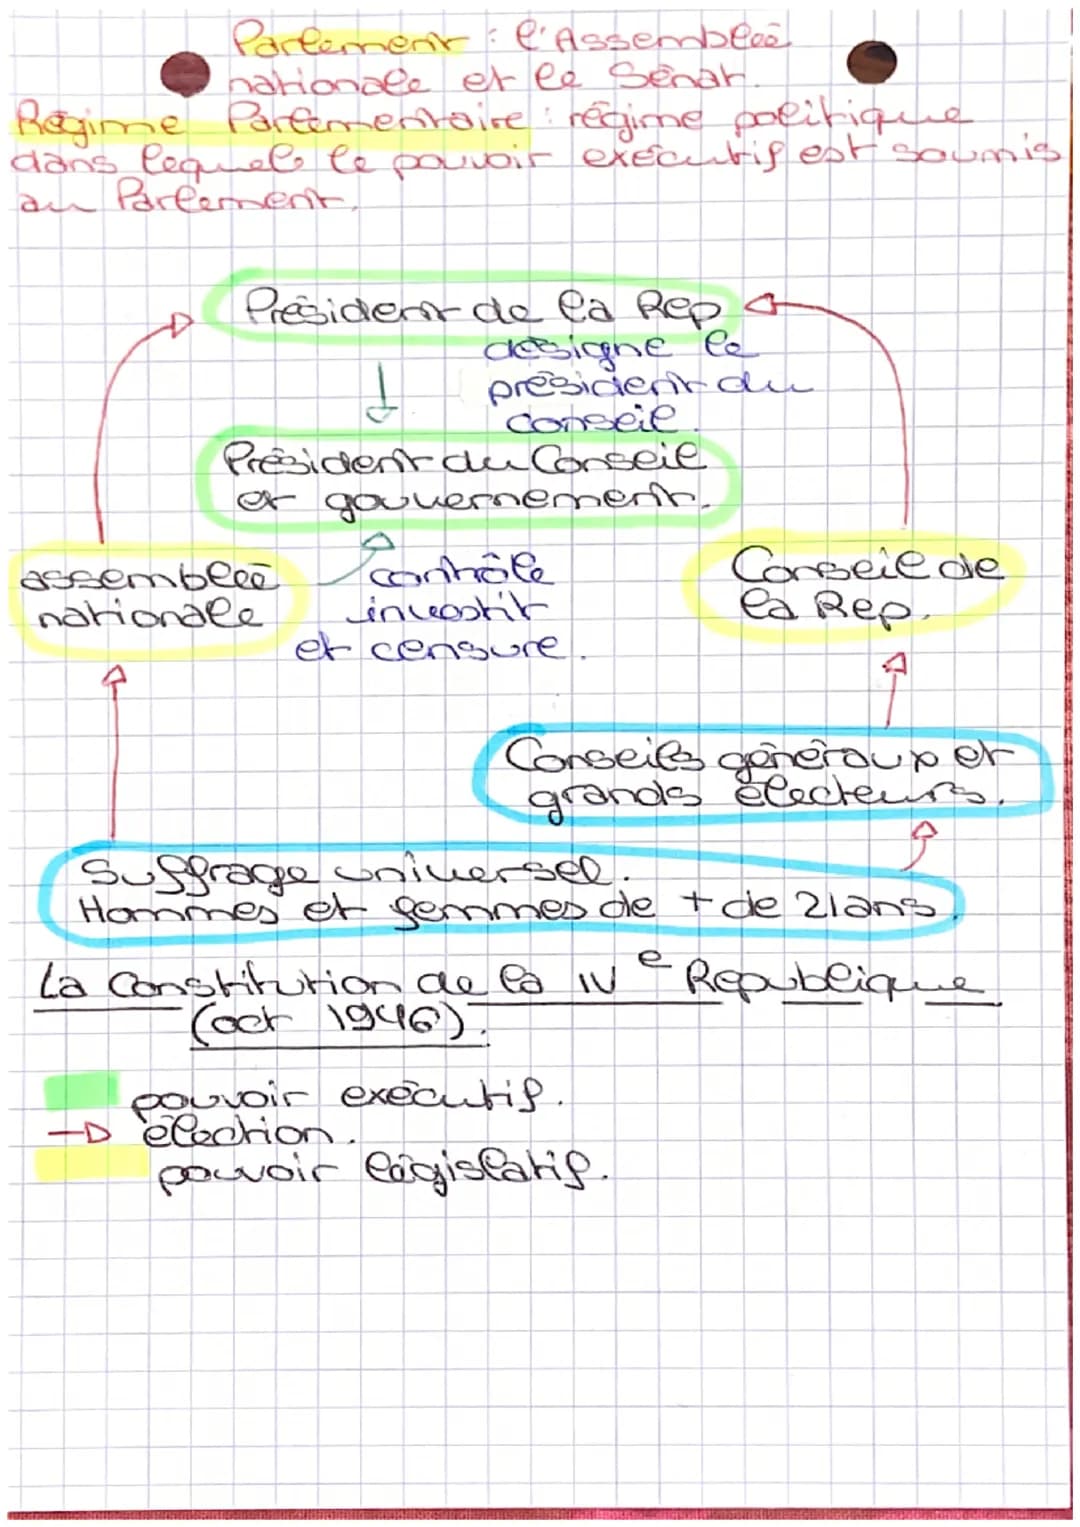 Parlement : l'Assemblée
nationale et le Sénat.
Régime Parlementaire : régime politique
dans lequel le pouvoir exécutif est soumis
au Parlement.
Président de la Rep
désigne le
président du
conseil.
Président du Conseil
et gouvernement.
assemblée
nationale
contrôle
investit
et censure.
Conseil de
la Rep.
Conseils généraux et
grands électeurs.
Suffrage universel.
Hommes et femmes de + de 21ans.
La Constitution de la IVe Republique
(oct 1946).
pouvoir exécutif.
élection.
pouvoir législatif.